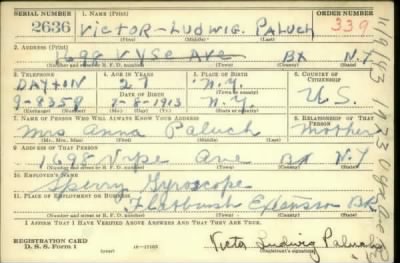 SERIAL NUMBER 1. NAME (Print) ORDER NUMBER
2636 Victor-Ludwig. Paluch 339
(First) (Middle) (Last)
2. ADDRESS (Print)
1698 VYSE Ave BX N.Y
(Number and street or R. F. D. number) (Town) (County) (State)
3. TELEPHONE 4. AGE IN YEARS 5. PLACE OF BIRTH 6. COUNTRY OF CITIZENSHIP
DAYTON 27 N.Y.
DATE OF BIRTH
9-8358 7-8-1913 N.Y. U.S.
(Mo.) (Day) (Yr.) (State or country)
7. NAME OF PERSON WHO WILL ALWAYS KNOW YOUR ADDRESS 8. RELATIONSHIP OF THAT PERSON
Mrs Anna Paluch Mother
(Mr., Mrs., Miss) (First) (Middle) (Last)
9. ADDRESS OF THAT PERSON
1698 Vyse Ave BX N.Y
(Number and street or R. F. D. number) (Town) (County) (State)
10. EMPLOYER'S NAME
Sperry Gyroscope
11. PLACE OF EMPLOYMENT OR BUSINESS
Flatbush Extension BK
(Number and street or R. F. D. number) (Town) (County) (State)
I AFFIRM THAT I HAVE VERIFIED ABOVE ANSWERS AND THAT THEY ARE TRUE.
REGISTRATION CARD
D. S. S. Form 1
Victor Ludwig Paluch
(Registrant's signature)
11/9/43